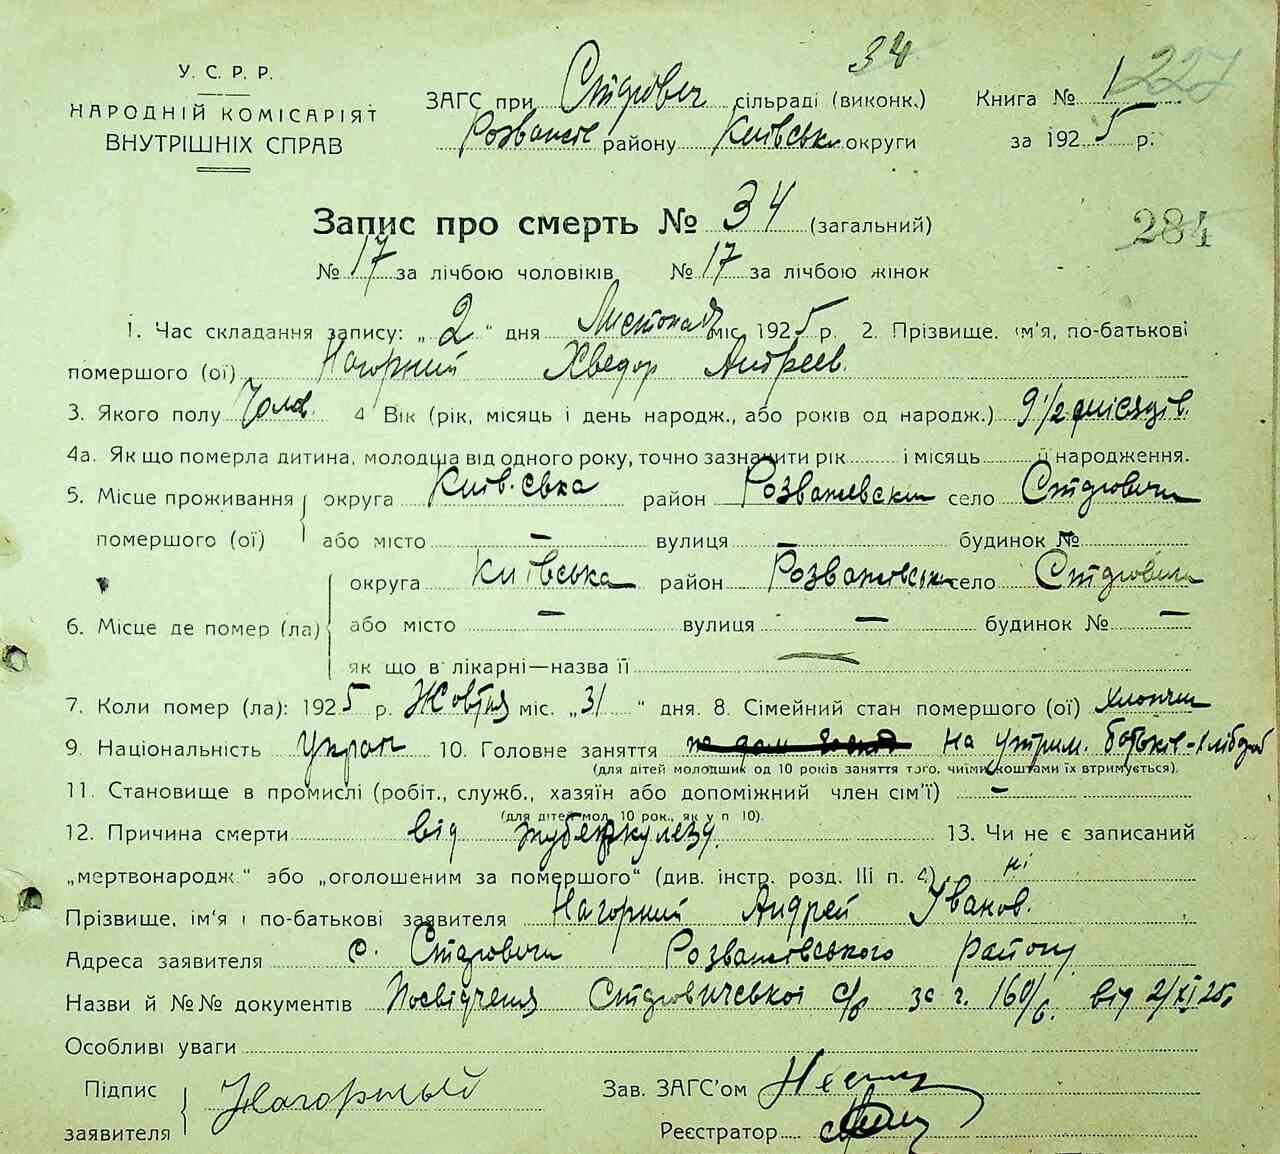 34
227
У. С. Р. Р.
НАРОДНІЙ КОМІСАРІЯТ
ВНУТРІШНІХ СПРАВ
ЗАГС при Стдрович сільраді (виконк.) Книга № 1
району Київськ округи за 1925 р.
Запис про смерть № 34 (загальний)
284
№ 17 за лічбою чоловіків № 17 за лічбою жінок
1. Час складання запису: „ 2 “ дня Листопад міс. 1925 р. 2. Прізвище, ім'я, по-батькові
помершого (ої) Нагорний Хведор Андреєв.
3. Якого полу Чолов. 4 Вік (рік, місяць і день народж., або років од народж.) 9 1/2 місяців.
4а. Як що померла дитина, молодша від одного року, точно зазначити рік і місяць її народження.
5. Місце проживання помершого (ої) округа Київ-ська район Розважевськ село
або місто — вулиця — будинок №
6. Місце де помер (ла) округа Київська район Розважевськ село
або місто — вулиця — будинок № —
як що в лікарні—назва її —
7. Коли помер (ла): 1925 р. Жовтня міс. „ 31 “ дня. 8. Сімейний стан помершого (ої) хлопчик
9. Національність Україн 10. Головне заняття на утрим. батьків-хлібороб
(для дітей молодших од 10 років заняття того, чиїми коштами їх втримується).
11. Становище в промислі (робіт., служб., хазяїн або допоміжний член сім'ї) —
(для дітей мол. 10 рок., як у п 10).
12. Причина смерти від туберкулезу. 13. Чи не є записаний
„мертвонародж.“ або „оголошеним за помершого“ (див. інстр. розд. III п. 4) ні
Прізвище, ім'я і по-батькові заявителя Нагорний Андрей Іванов.
Адреса заявителя с. Розважівського району
Назви й №№ документів Посвідчення с/р за ч. 160/б. від 2/XI 25р
Особливі уваги
Підпис заявителя Нагорный Зав. ЗАГС'ом
Реєстратор